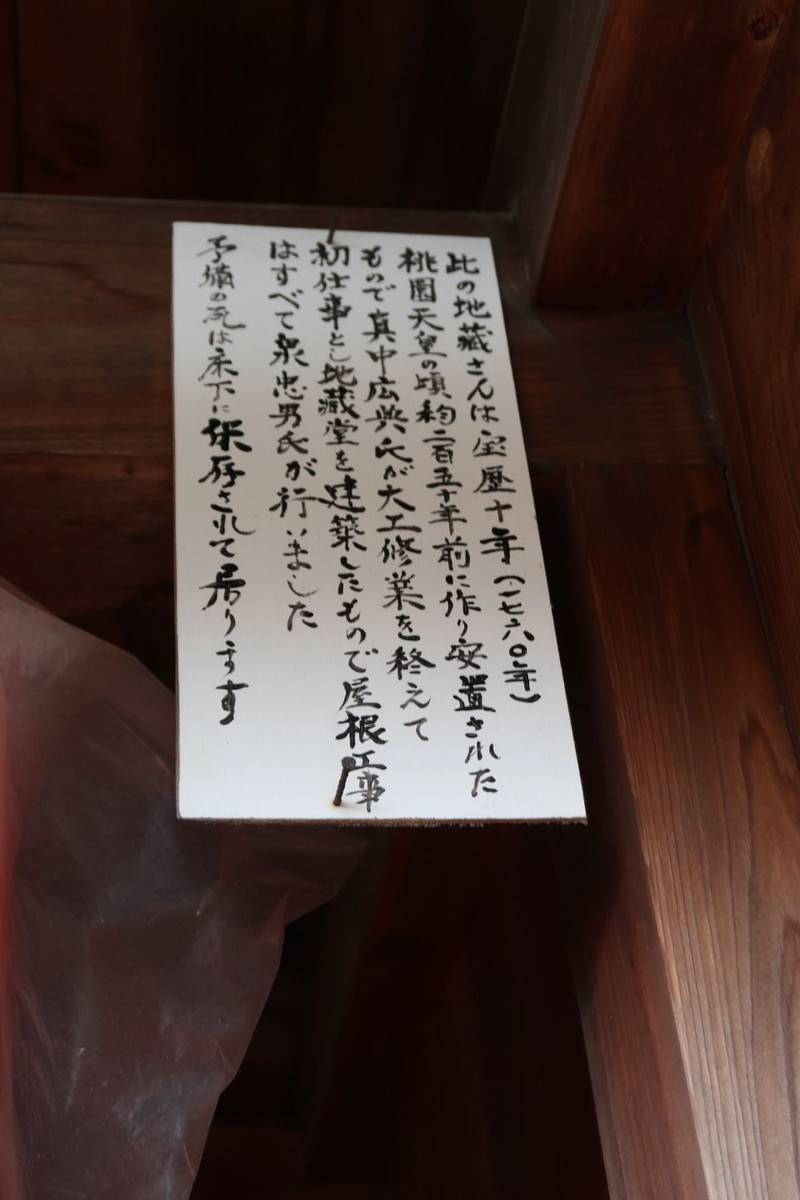 此の地蔵さんは宝歴十年(一七六〇年)
桃園天皇の頃約二百五十年前に作り安置された
もので真中広典氏が大工修業を終えて
初仕事とし地蔵堂を建築したもので屋根工事
はすべて泉忠男氏が行いました
予備の瓦は床下に保存されて居ります